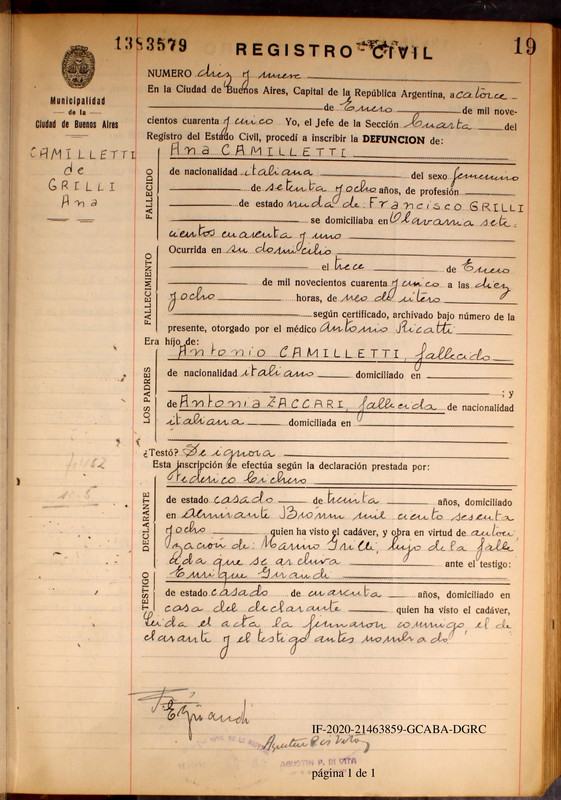 1383579
REGISTRO CIVIL
19
Municipalidad
de la
Ciudad de Buenos Aires
CAMILLETTI
de
GRILLI
Ana
NUMERO diez y nueve
En la Ciudad de Buenos Aires, Capital de la República Argentina, a catorce
de Enero de mil nove-
cientos cuarenta y cinco Yo, el Jefe de la Sección Cuarta del
Registro del Estado Civil, procedí a inscribir la DEFUNCION de:
Ana CAMILLETTI
FALLECIDO
de nacionalidad italiana del sexo femenino
de setenta y ocho años, de profesión
de estado viuda de Francisco GRILLI
se domiciliaba en Olavarria sete-
cientos cuarenta y uno
FALLECIMIENTO
Ocurrida en su domicilio
el trece de Enero
de mil novecientos cuarenta y cinco a las diez
y ocho horas, de neo de útero
según certificado, archivado bajo número de la
presente, otorgado por el médico Antonio Ricatti
Era hijo de:
LOS PADRES
Antonio CAMILLETTI, fallecido
de nacionalidad italiano domiciliado en
; y
de Antonia ZACCARI, fallecida de nacionalidad
italiana domiciliada en
¿Testó? Se ignora
Esta inscripción se efectúa según la declaración prestada por:
DECLARANTE
Federico Cichero
de estado casado de treinta años, domiciliado
en Almirante Brown mil ciento sesenta
y ocho quien ha visto el cadáver, y obra en virtud de autori
zación de: Marino Grilli, hijo de la falle
cida que se archiva ante el testigo:
TESTIGO
Enrique Girandi
de estado casado de cuarenta años, domiciliado en
casa del declarante quien ha visto el cadáver,
Leida el acta la firmaron conmigo, el de
clarante y el testigo antes nombrado
EGirandi
IF-2020-21463859-GCABA-DGRC
AGUSTIN P. DI VITA
página 1 de 1